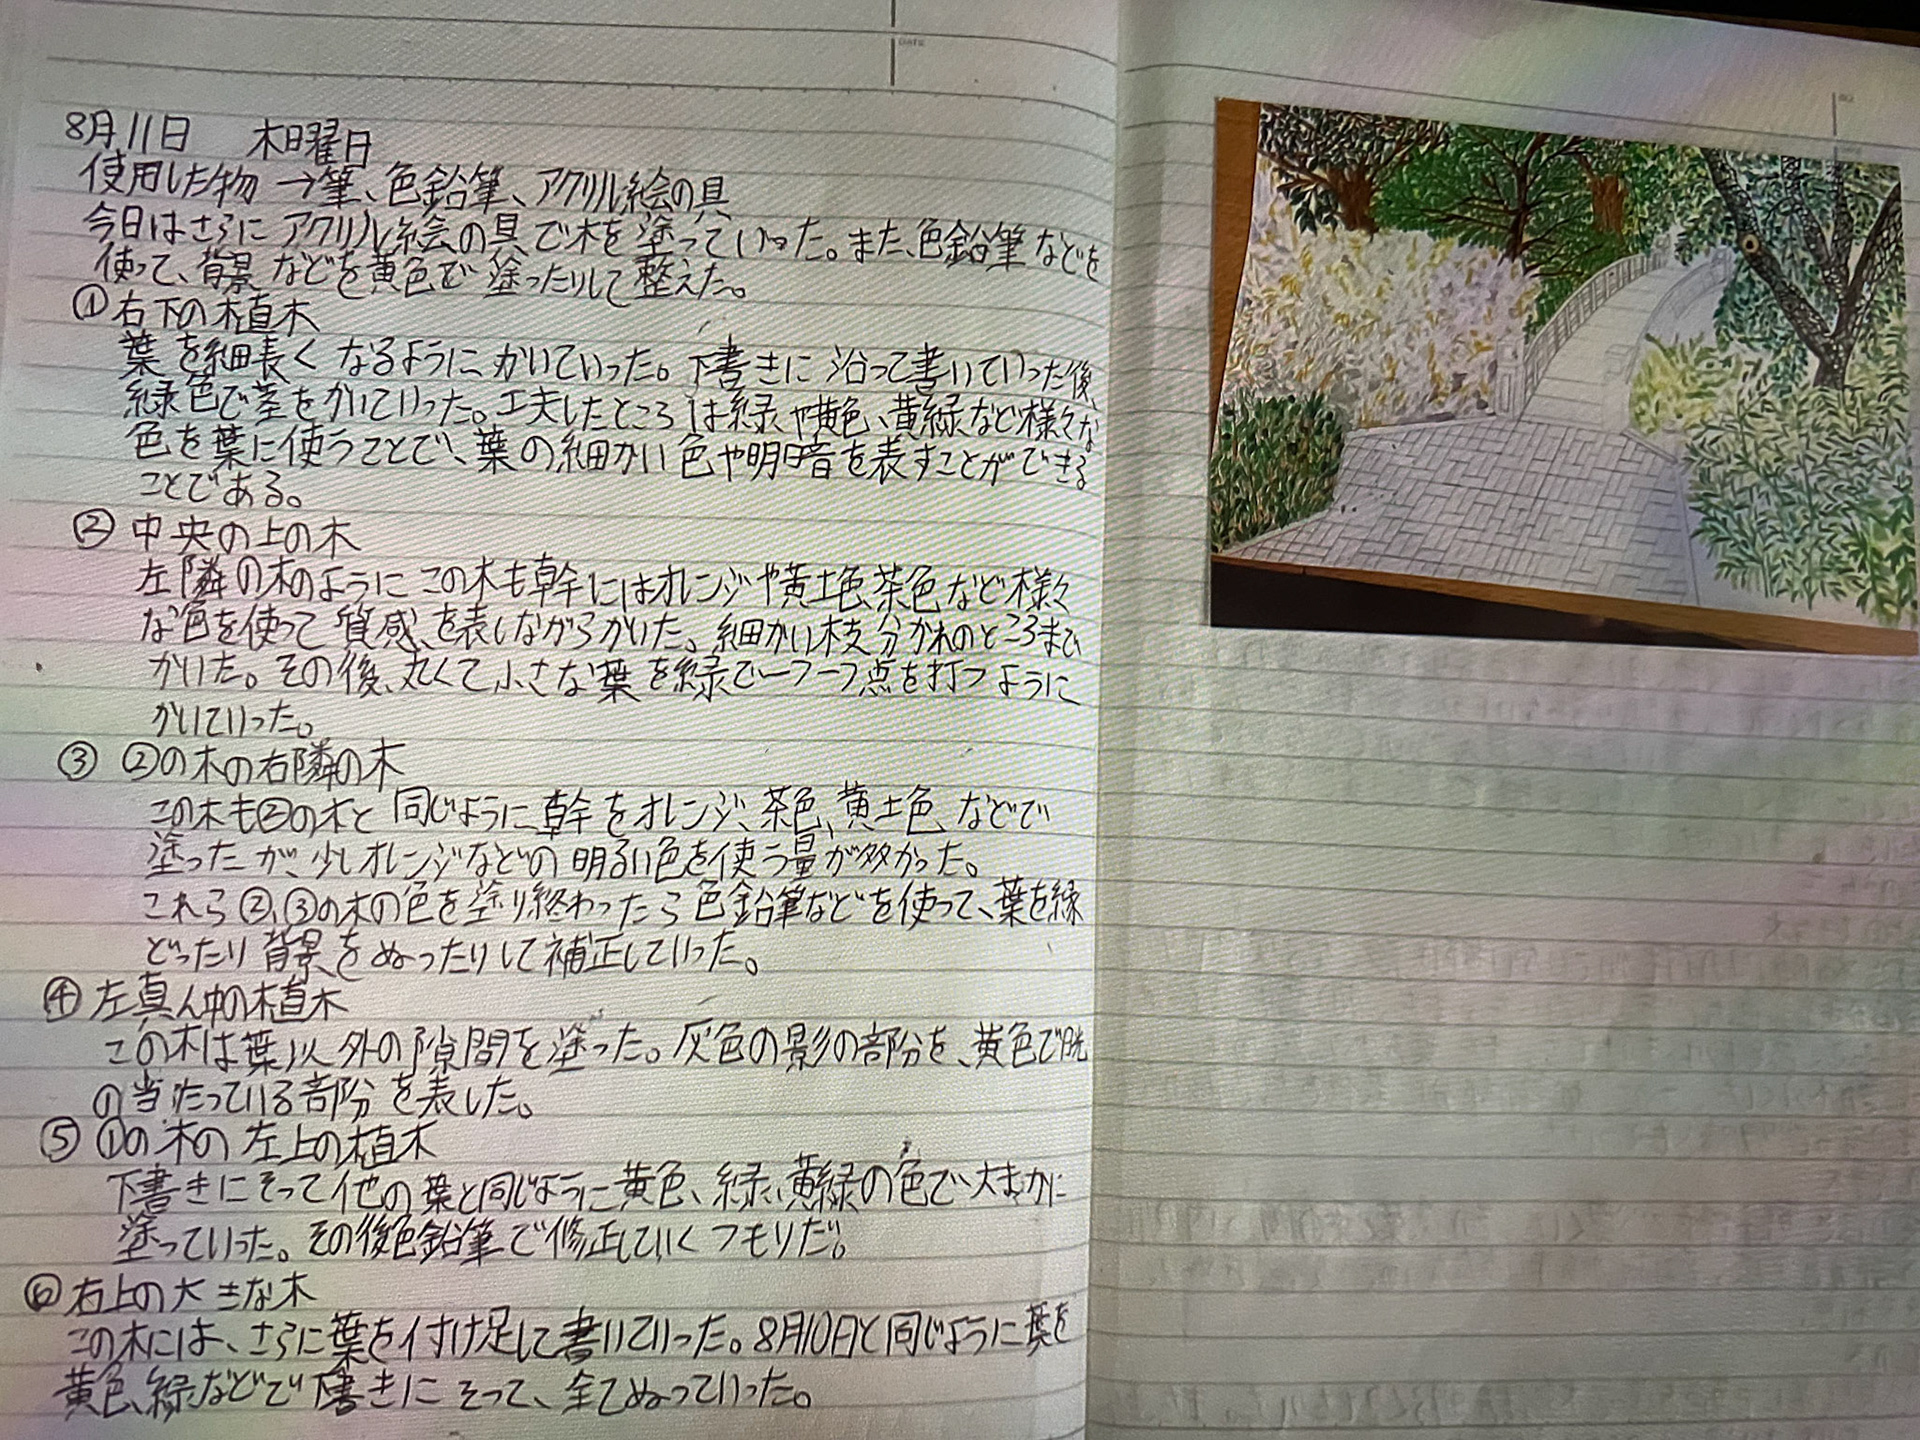 8月11日 木曜日
使用した物→筆、色鉛筆、アクリル絵の具
今日はさらにアクリル絵の具で木を塗っていった。また、色鉛筆などを
使って、背景などを黄色で塗ったりして整えた。
①右下の植木
葉を細長くなるようにかいていった。下書きに沿って書いていった後、
緑色で茎をかいていった。工夫したところは緑や黄色、黄緑など様々な
色を葉に使うことで、葉の細かい色や明暗を表すことができる
ことである。
②中央の上の木
左隣の木のようにこの木も幹にはオレンジや黄土色、茶色など様々
な色を使って質感を表しながらかいた。細かい枝分かれのところまで
かいた。その後、丸くて小さな葉を緑で一つ一つ点を打つように
かいていった。
③ ②の木の右隣の木
この木も②の木と同じように幹をオレンジ、茶色、黄土色、などで
塗ったが、少しオレンジなどの明るい色を使う量が多かった。
これら②、③の木の色を塗り終わったら色鉛筆などを使って、葉を縁
どったり背景をぬったりして補正していった。
④左真ん中の植木
この木は葉以外の隙間を塗った。灰色の影の部分を、黄色で光
の当たっている部分を表した。
⑤ ①の木の左上の植木
下書きにそって他の葉と同じように黄色、緑、黄緑の色で大まかに
塗っていった。その後色鉛筆で修正していくつもりだ。
⑥右上の大きな木
この木には、さらに葉を付け足して書いていった。8月10日と同じように葉を
黄色、緑などで下書きにそって、全てぬっていった。
DATE